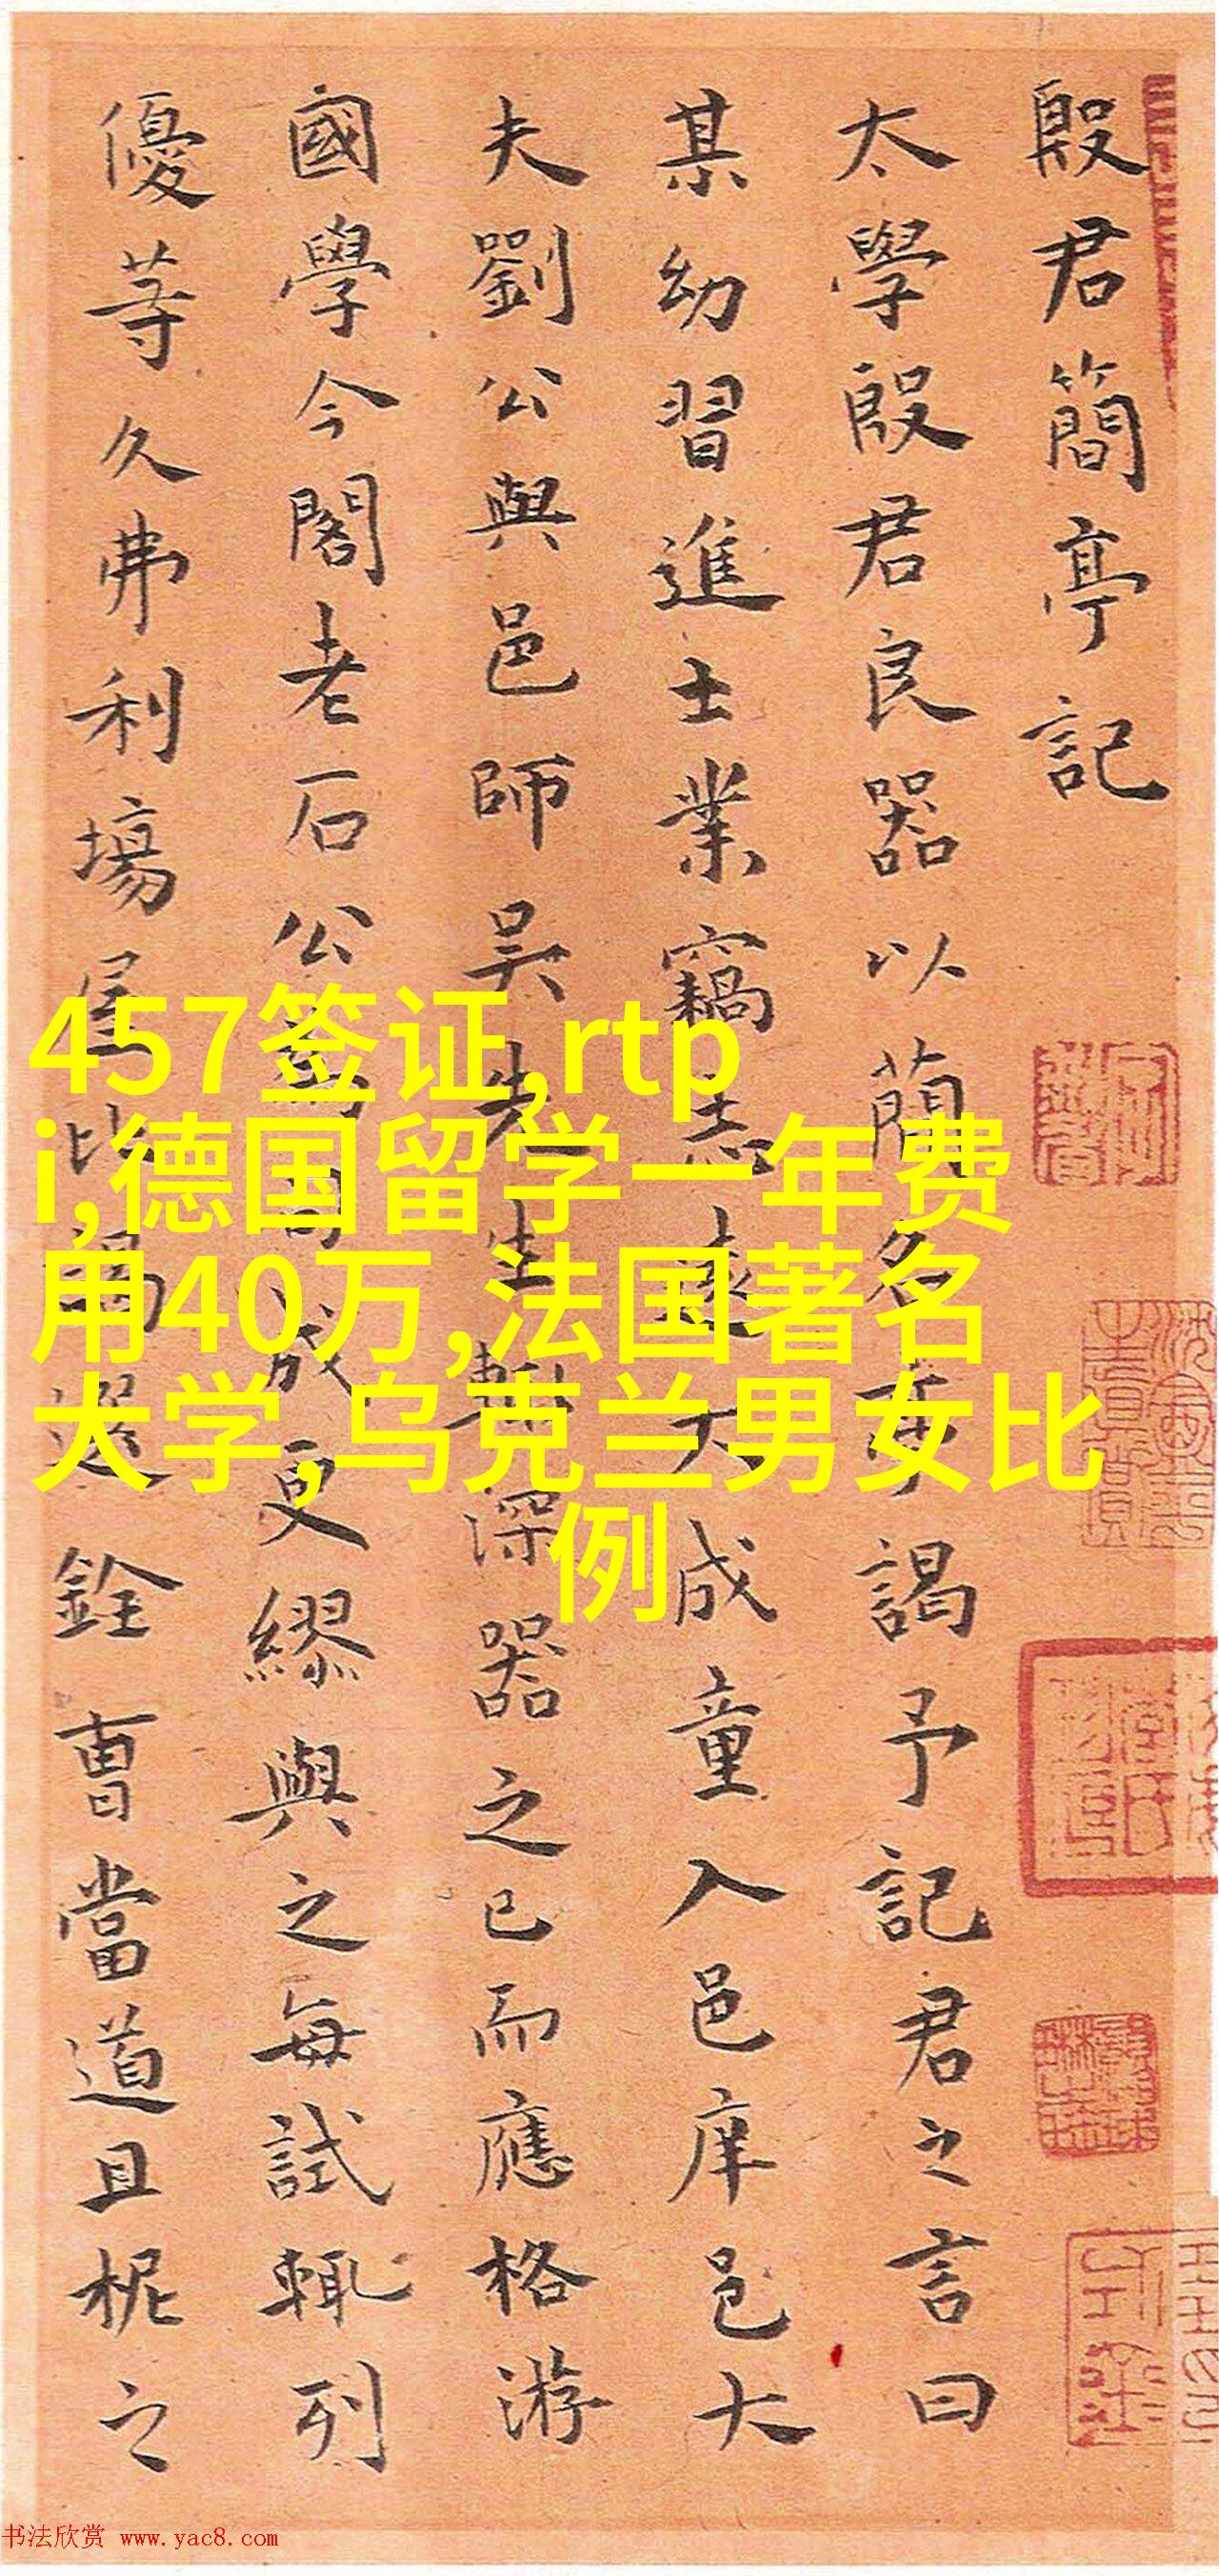 殷君簡亭記
太學殷君良器以簡名亭謁予記君之言曰
某幼習進士業竊志遠大成童入邑庠邑大
夫劉公與邑師吴先生輒深器之已而應格游
國學今閣老石公為司成更繆與之每試輒列
優等久弗利場屋比謁選銓曹當道且柅之
457签证,rtp
i,德国留学一年费
用40万,法国著名
大学,乌克兰男女比
例
书法欣赏 www.yac8.com